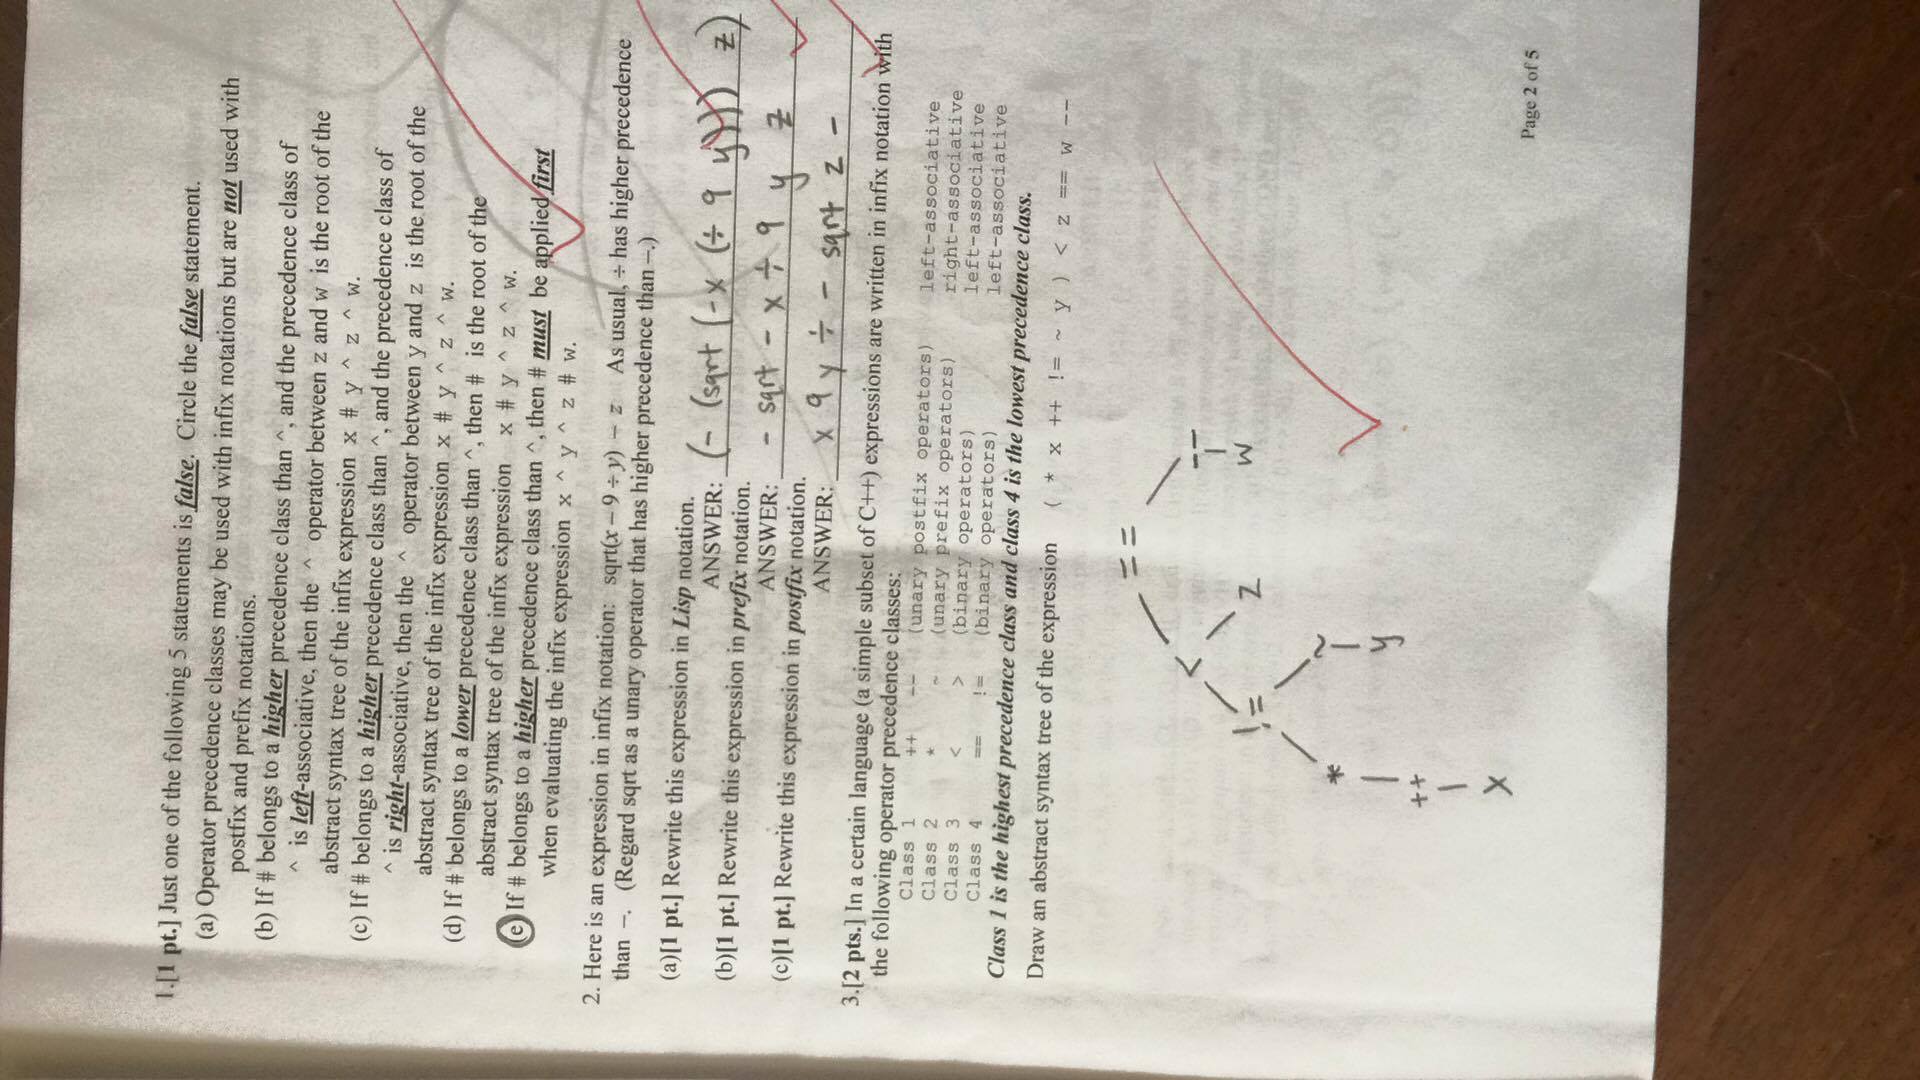 1.[1 pt.] Just one of the following 5 statements is false. Circle the false statement.
(a) Operator precedence classes may be used with infix notations but are not used with
postfix and prefix notations.
(b) If # belongs to a higher precedence class than ^, and the precedence class of
^ is left-associative, then the ^ operator between z and w is the root of the
abstract syntax tree of the infix expression x # y ^ z ^ w.
(c) If # belongs to a higher precedence class than ^, and the precedence class of
^ is right-associative, then the ^ operator between y and z is the root of the
abstract syntax tree of the infix expression x # y ^ z ^ w.
(d) If # belongs to a lower precedence class than ^, then # is the root of the
abstract syntax tree of the infix expression x # y ^ z ^ w.
(e) If # belongs to a higher precedence class than ^, then # must be applied first
when evaluating the infix expression x ^ y ^ z # w.
2. Here is an expression in infix notation: sqrt(x – 9 ÷ y) – z As usual, ÷ has higher precedence
than –. (Regard sqrt as a unary operator that has higher precedence than –.)
(a)[1 pt.] Rewrite this expression in Lisp notation.
ANSWER: (- (sqrt (-x (÷ 9 y))) z)
(b)[1 pt.] Rewrite this expression in prefix notation.
ANSWER: - sqrt - x ÷ 9 y z
(c)[1 pt.] Rewrite this expression in postfix notation.
ANSWER: x 9 y ÷ - sqrt z -
3.[2 pts.] In a certain language (a simple subset of C++) expressions are written in infix notation with
the following operator precedence classes:
Class 1 ++ -- (unary postfix operators) left-associative
Class 2 * ~ (unary prefix operators) right-associative
Class 3 < > (binary operators) left-associative
Class 4 == != (binary operators) left-associative
Class 1 is the highest precedence class and class 4 is the lowest precedence class.
Draw an abstract syntax tree of the expression ( * x ++ != ~ y ) < z == w --
==
< --
!= z w
* ~
y
++
x
Page 2 of 5